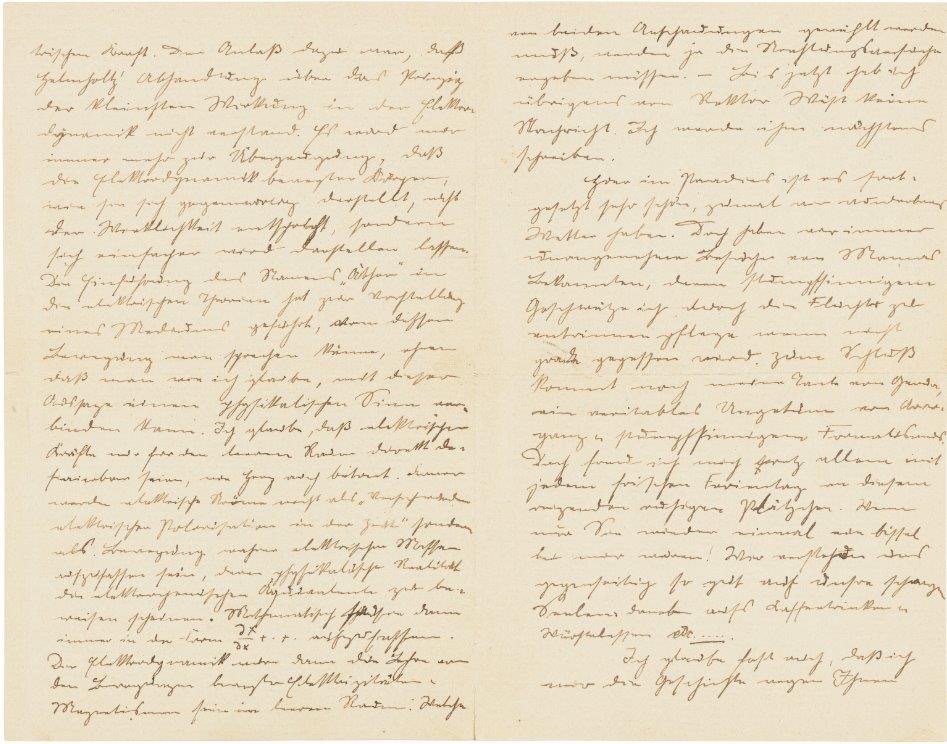 trischen Kraft. Den Anlaß dazu war, daß
Helmholtz' Abhandlung über das Prinzip
der kleinsten Wirkung in der Elektro-
dynamik nicht verstand. Es wird mir
immer mehr zur Überzeugung, daß
die Elektrodynamik bewegter Körper,
wie sie sich gegenwärtig darstellt, nicht
der Wirklichkeit entspricht, sondern
sich einfacher wird darstellen lassen.
Die Einführung des Namens „Äther“ in
die elektrischen Theorien hat zur Vorstellung
eines Mediums geführt, von dessen
Bewegung man sprechen könne, ohne
daß man wie ich glaube, mit dieser
Aussage einen physikalischen Sinn ver-
binden kann. Ich glaube, daß elektrische
Kräfte nur für den leeren Raum direkt de-
finierbar seien, von Herz auch betont. Ferner
werden elektrische Ströme nicht als „Verschwinden
elektrischer Polarisation in der Zeit“ sondern
als Bewegung wahrer elektrischer Massen
aufzufassen sein, deren physikalische Realität
die elektrochemischen Äquivalente zu be-
weisen scheinen. Mathematisch sind sie dann
immer in der Form ∂X/∂x + . + . aufzufassen.
Die Elektrodynamik wäre dann die Lehre von
den Bewegungen bewegter Elektrizitäten &
Magnetismen im leeren Raum: Welche
von beiden Anschauungen gewählt werden
muß, werden ja die Strahlungsversuche
ergeben müssen. – Bis jetzt hab ich
übrigens von Rektor Wüst keine
Nachricht. Ich werde ihm nächstens
schreiben.
Hier im Paradies ist es fort-
gesetzt sehr schön, zumal wir wunderbares
Wetter haben. Doch haben wir immer
unangenehme Besuche von Mamas
Bekannten, deren stumpfsinnigem
Geschwätze ich durch die Flucht zu
entrinnen pflege wenn nicht
grade gegessen wird. Zum Schluß
kommt noch meine Tante von Genua,
ein veritables Ungetüm von Arro-
ganz & stumpfsinnigem Formalismus.
Doch freue ich mich trotz allem mit
jedem frischen Ferientag an diesem
reizenden ruhigen Plätzchen. Wenn
nur Sie wieder einmal ein bissel
bei mir wären! Wir verstehen uns
gegenseitig so gut auf unsre schwarzen
Seelen & daneben aufs Kaffeetrinken &
Würstelessen etc.....
Ich glaube fast auch, daß ich
nur die Geschichte wegen Ihnen